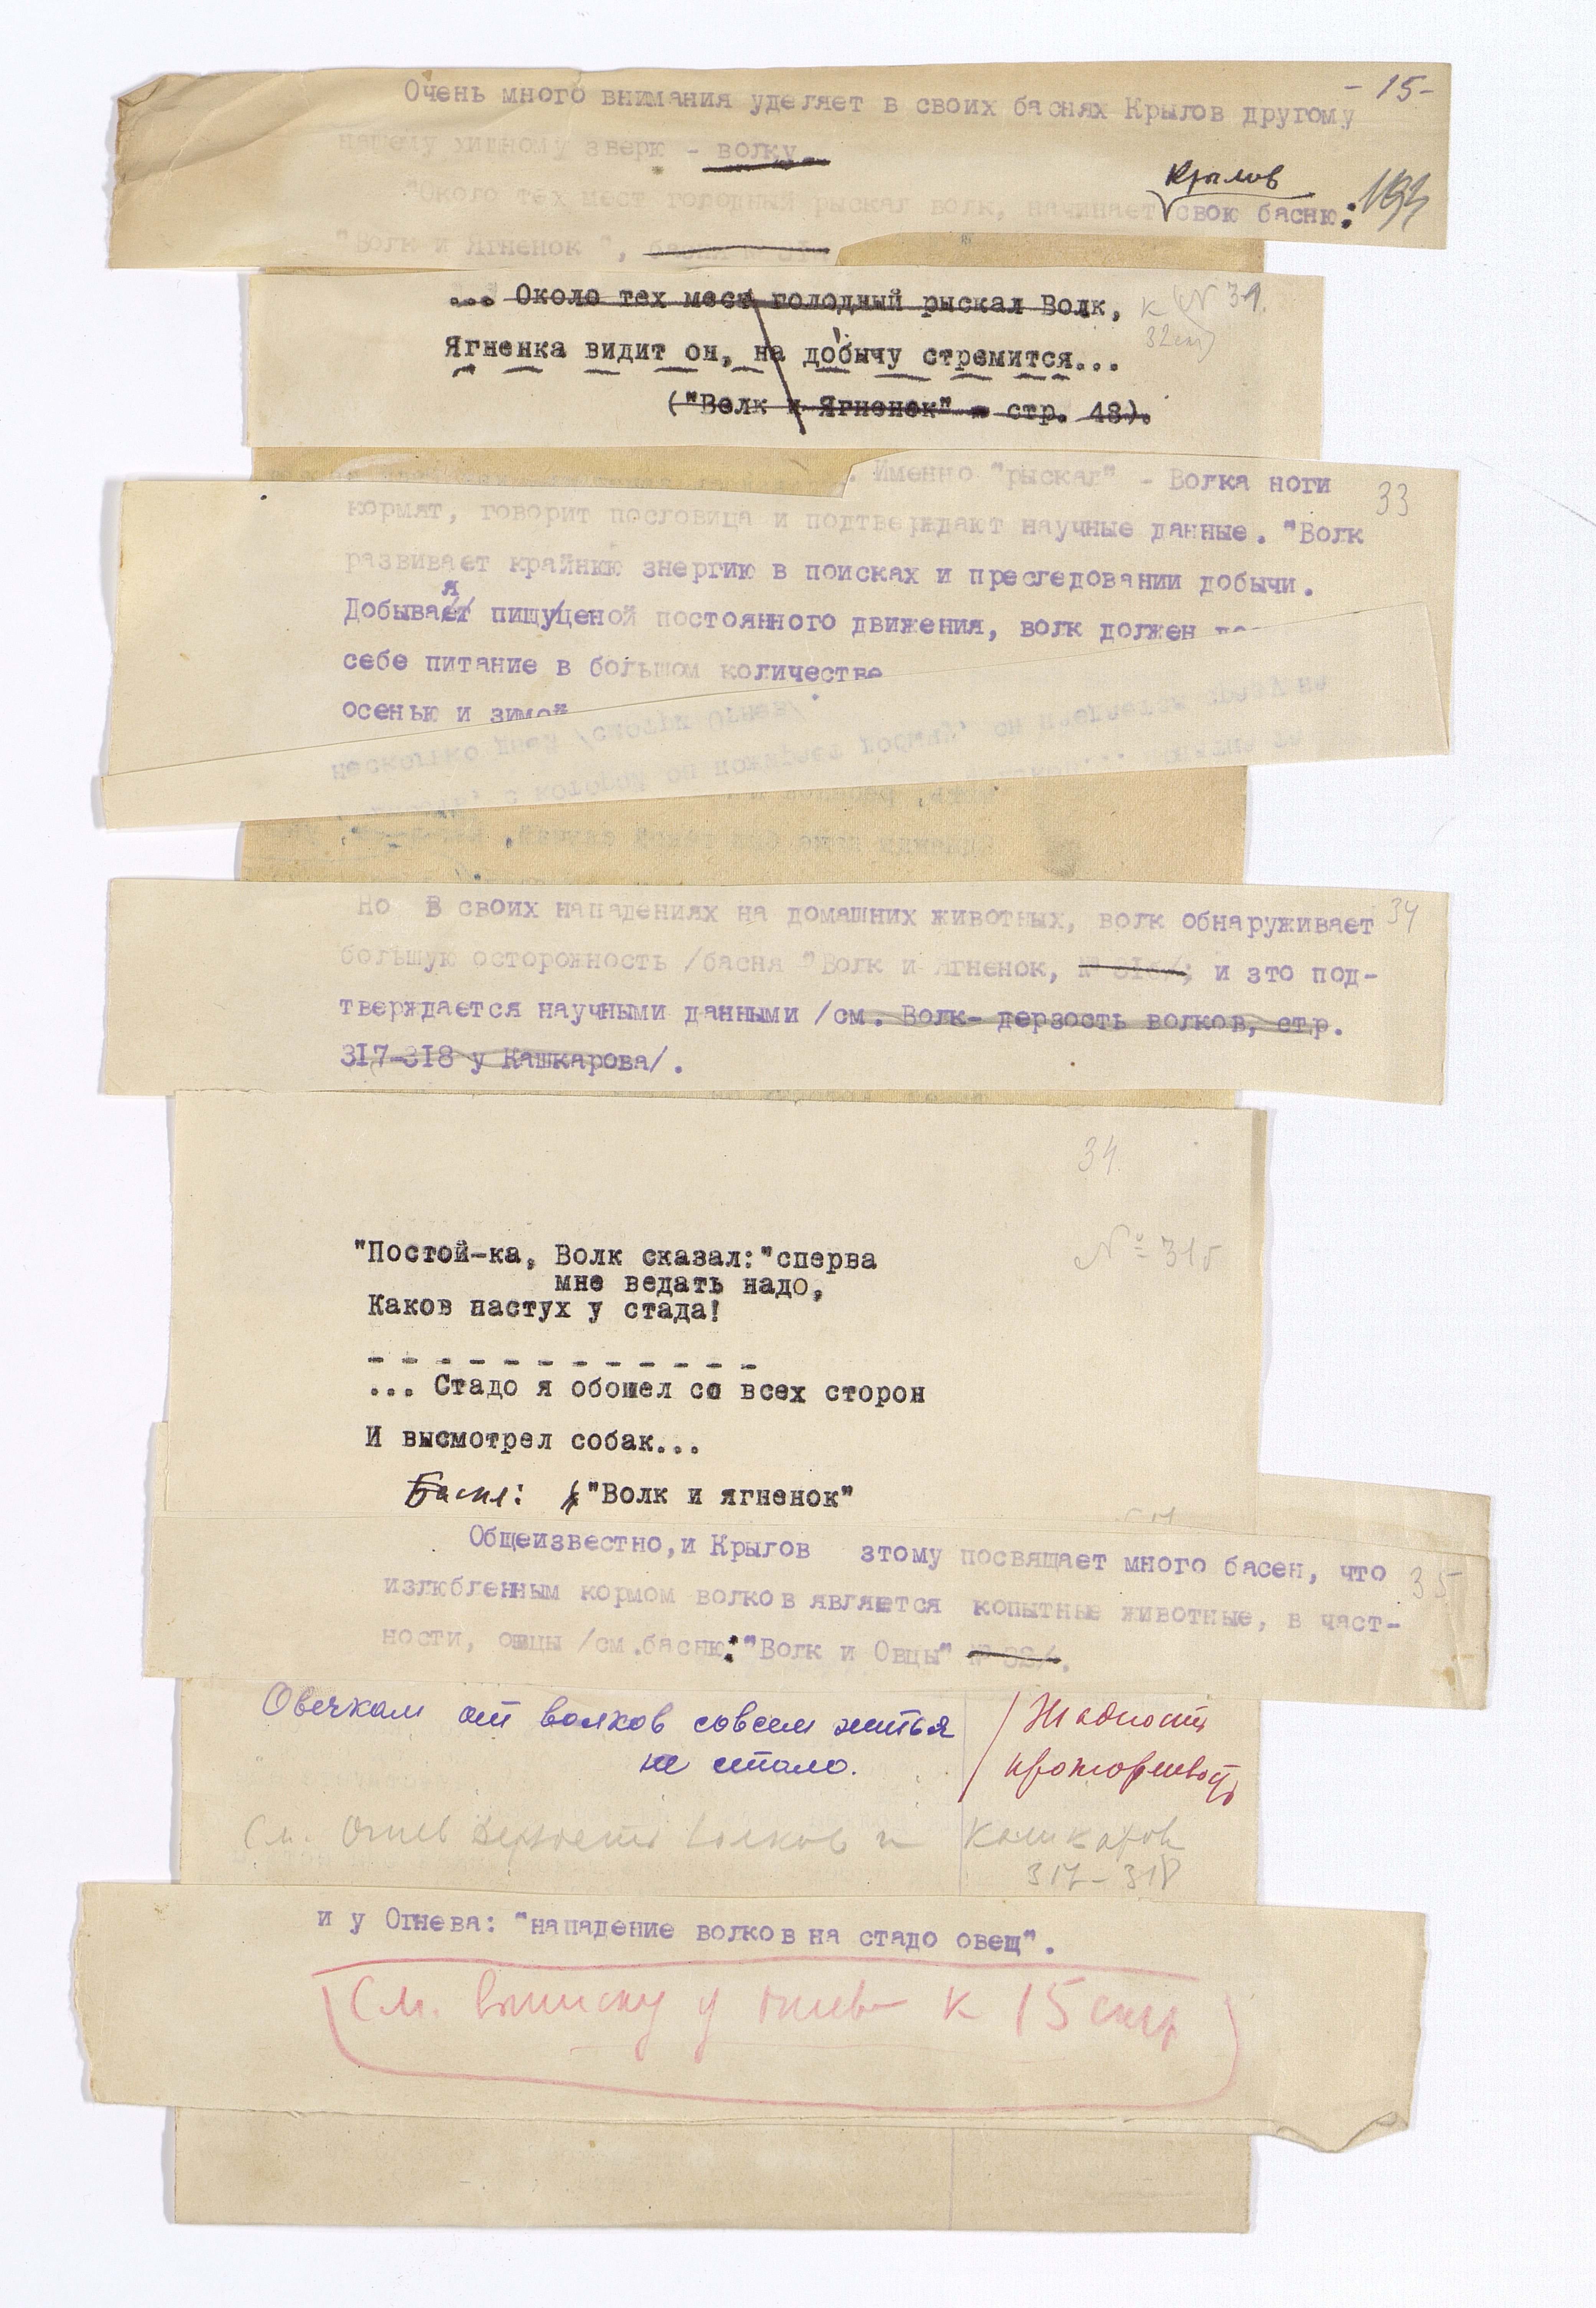 -15-
Очень много внимания уделяет в своих баснях Крылов другому
нашему хищному зверю - волку
Крылов
"Около тех мест голодный рыскал волк, начинает свою басню:
"Волк и Ягненок ", басня №
... Около тех мест голодный рыскал Волк,
к (N 31.
32
Ягненка видит он, на добычу стремится...
("Волк и Ягненок" - стр. 48).
. Именно "рыскал" - Волка ноги
33
кормят, говорит пословица и подтверждают научные данные. "Волк
развивает крайнюю энергию в поисках и преследовании добычи.
я
Добывает пищу/ценой постоянного движения, волк должен
себе питание в большом количестве
осенью и зимой
несколько дней /смотри Огнев/.
с которой он пожирает добычу, он
Но В своих нападениях на домашних животных, волк обнаруживает
34
большую осторожность /басня "Волк и Ягненок, № 31б/; и это под-
тверждается научными данными /см. Волк- дерзость волков, стр.
317-318 у Кашкарова/.
34
"Постой-ка, Волк сказал:"сперва
№ 31б
мне ведать надо,
Каков пастух у стада!
- - - - - - - - - - - -
... Стадо я обошел со всех сторон
И высмотрел собак...
Басня: "Волк и ягненок"
Общеизвестно,и Крылов этому посвящает много басен, что
35
излюбленным кормом волков является копытные животные, в част-
ности, овцы /см.басню:"Волк и Овцы" № 32/.
Овечкам от волков совсем житья
не стало.
/ Жадность
прожорливость
См. Огнев Дерзость волков и Кашкаров
317-318
и у Огнева: "нападение волков на стадо овец".
См. выписку у Огнева к 15 стр